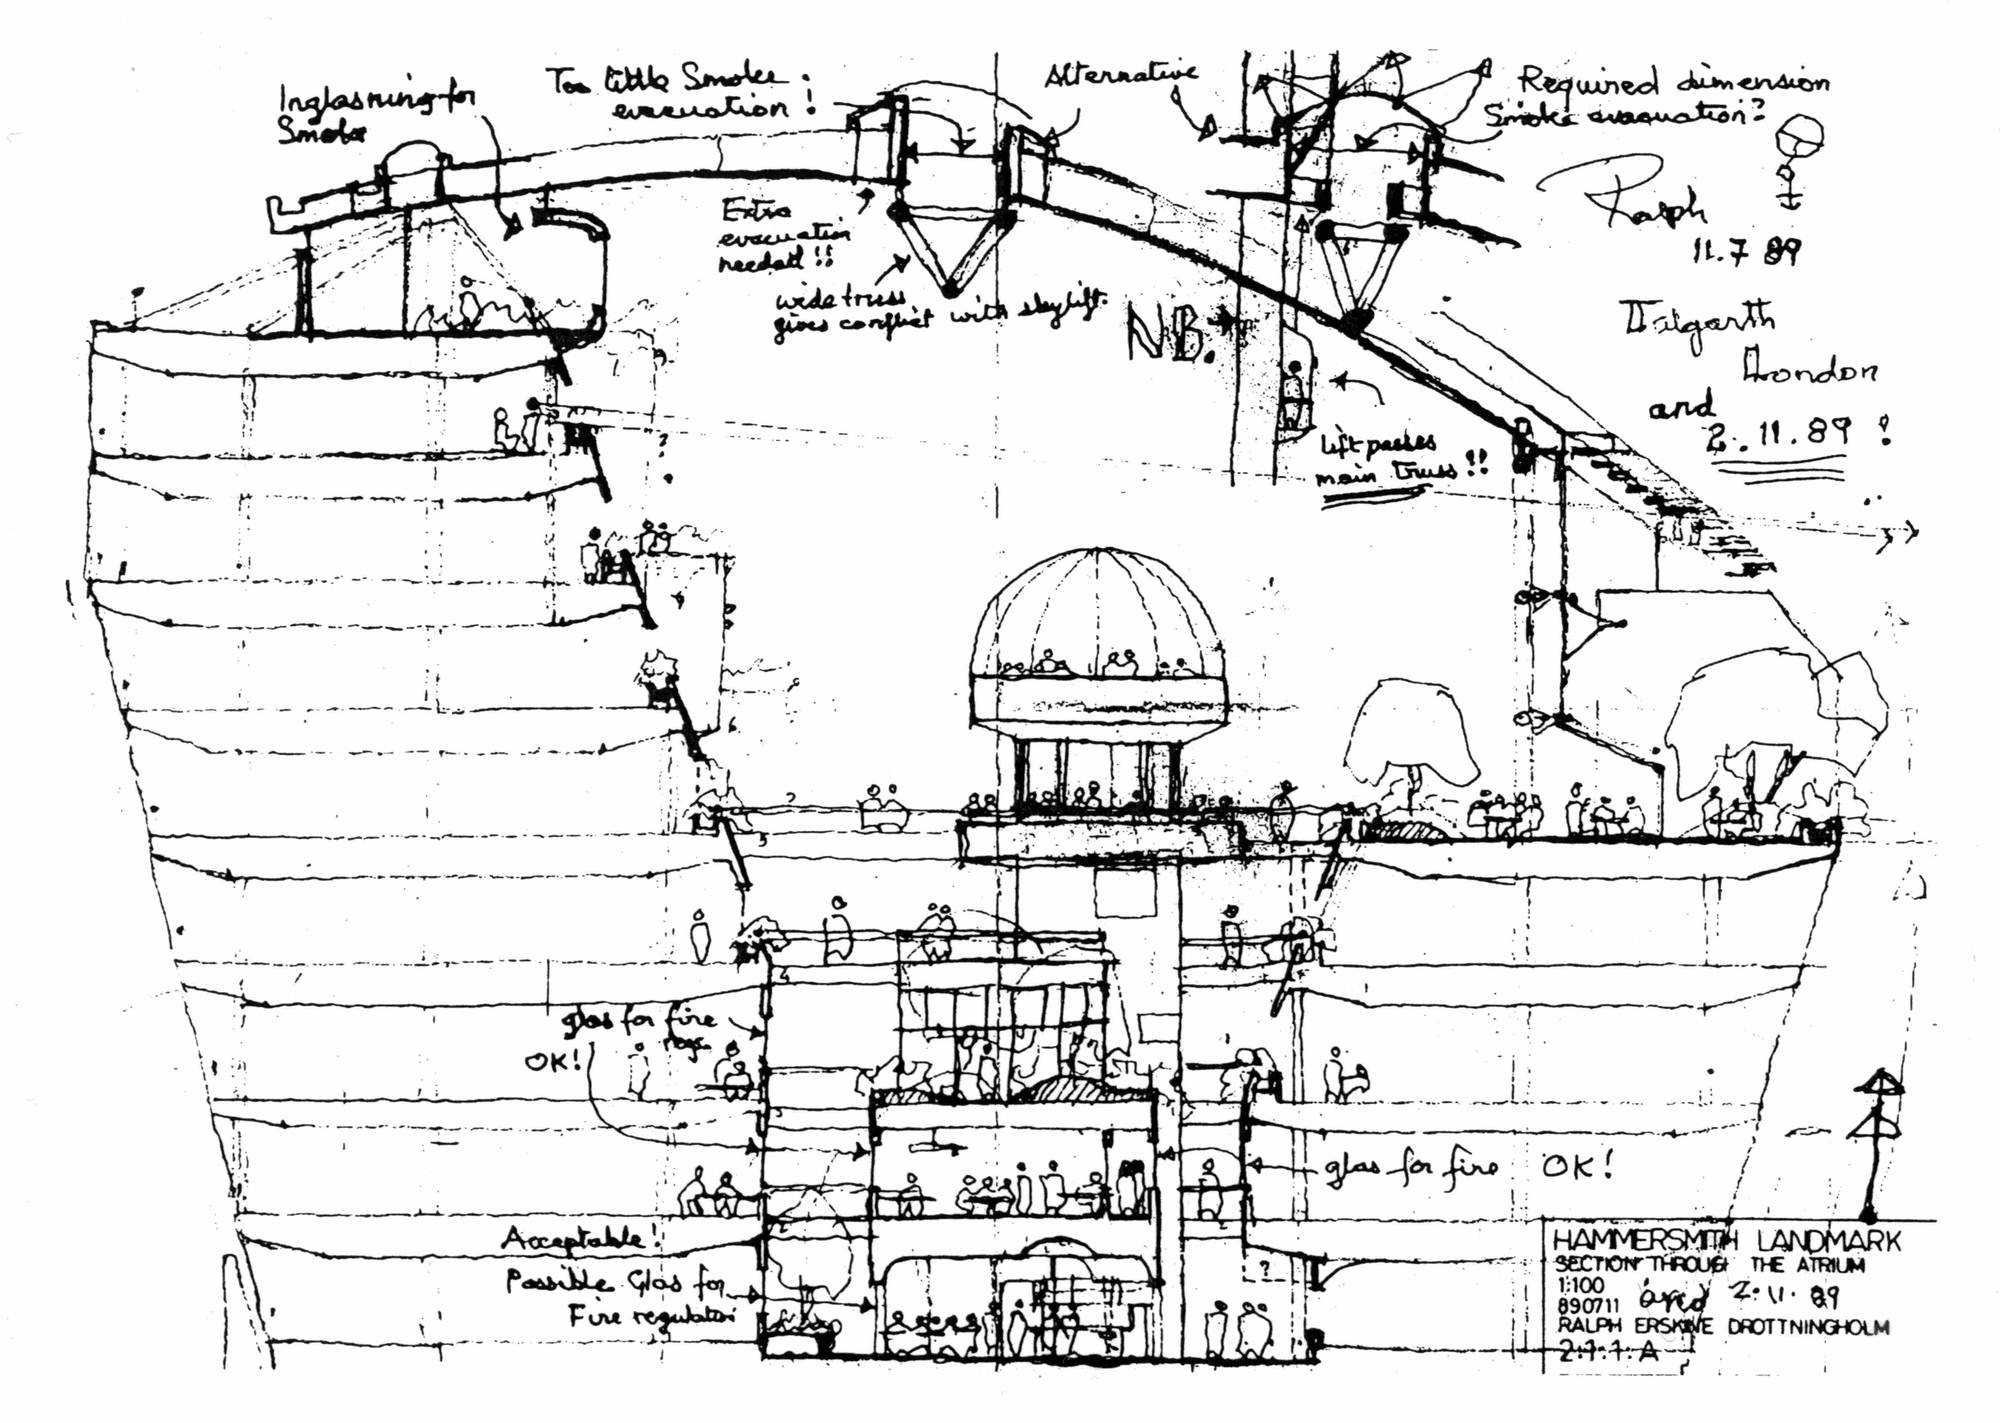 Inglasning for
Smoke
Too little Smoke
evacuation !
Alternative
Required dimension
Smoke evacuation?
Ralph
11.7 89
Extra
evacuation
needed !!
wide truss
gives conflict with skylift.
NB.
lift passes
main truss !!
London
and
2. 11. 89 !
glas for fire
regs.
OK!
glas for fire OK!
Acceptable!
Possible Glas for
Fire regulation
?
HAMMERSMITH LANDMARK
SECTION THROUGH THE ATRIUM
1:100
890711 and 2.11.89
RALPH ERSKINE DROTTNINGHOLM
2.1.1.A